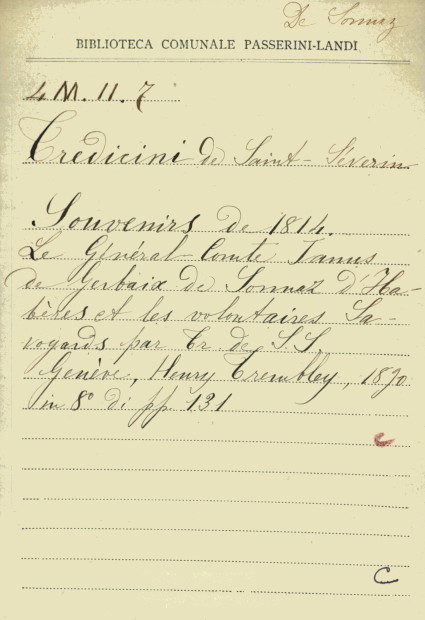 De Sonnaz
BIBLIOTECA COMUNALE PASSERINI-LANDI
4 M. 11. 7
Tredicini de Saint-Séverin
Souvenirs de 1814.
Le Général-Comte Janus
de Gerbaix de Sonnaz d'Ha-
bères et les volontaires Sa-
vogards par Tr. de S. S.
Genève, Henry Trembley, 1890
in 8° di pp. 131
C
C